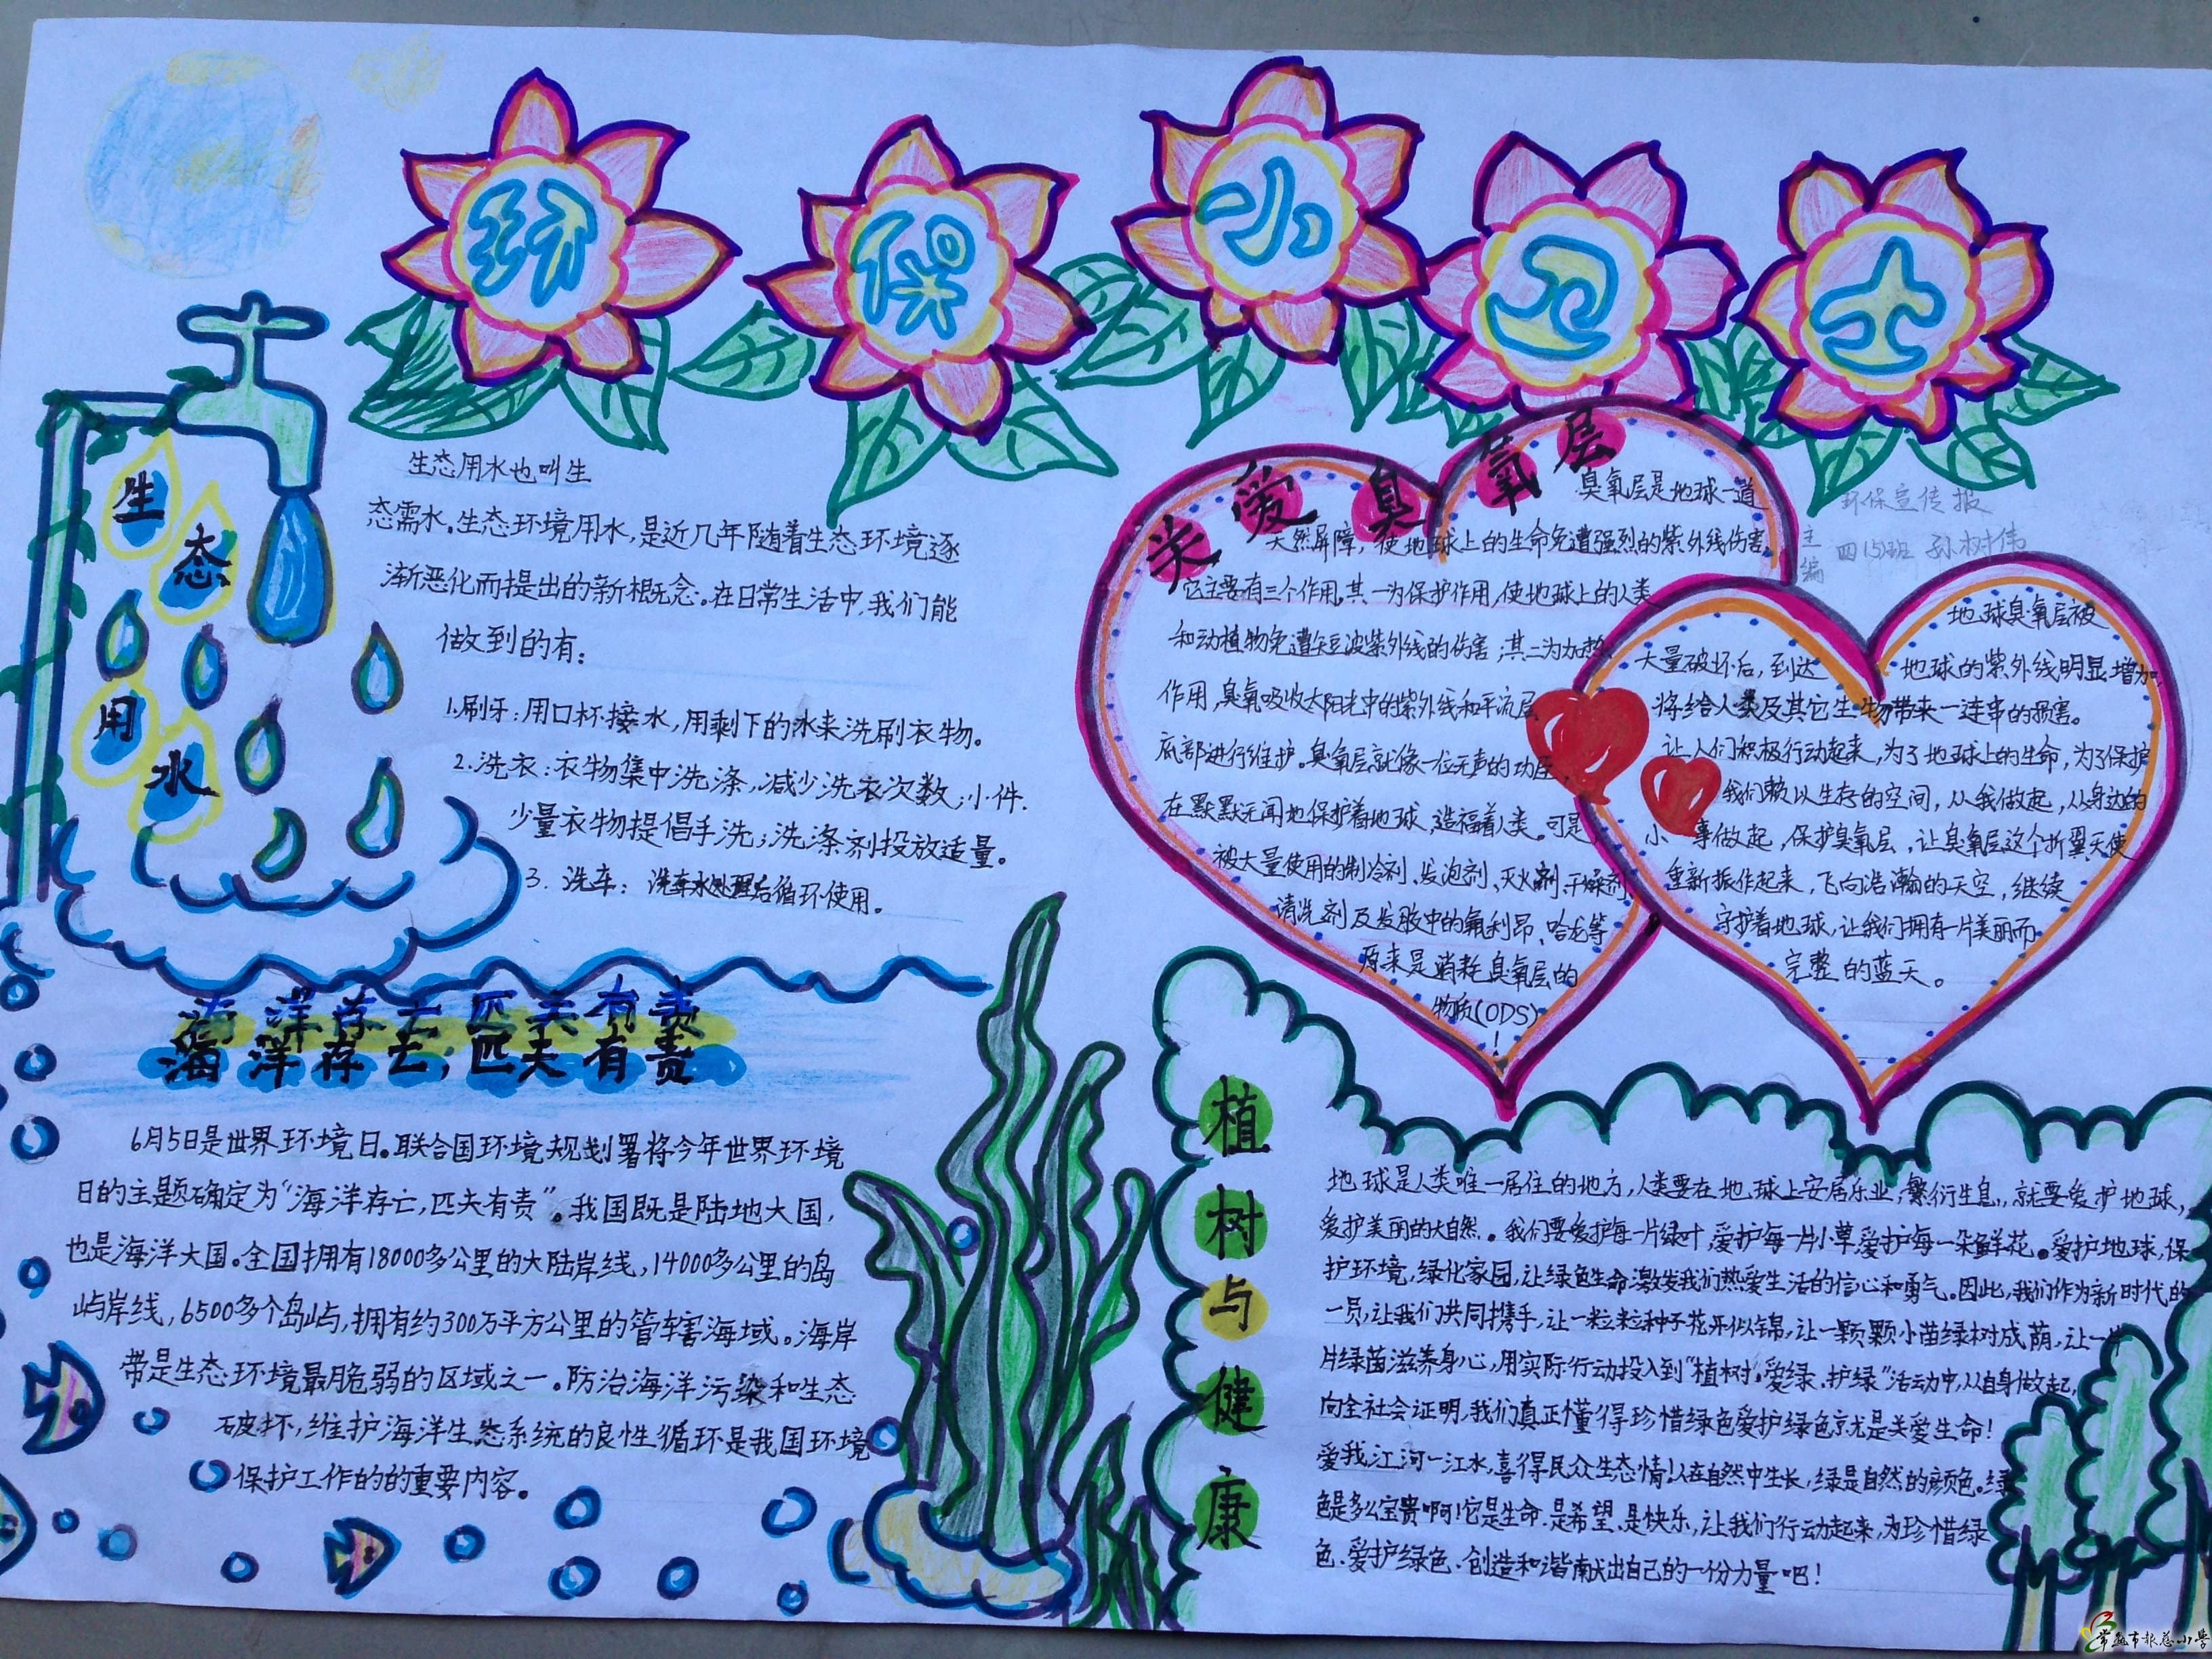 环保小卫士
生态用水
生态用水也叫生
态需水。生态环境用水,是近几年随着生态环境逐
渐恶化而提出的新概念。在日常生活中,我们能
做到的有:
1.刷牙:用口杯接水,用剩下的水来洗刷衣物。
2.洗衣:衣物集中洗涤,减少洗衣次数;小件.
少量衣物提倡手洗;洗涤剂投放适量。
3. 洗车: 洗车水处理后循环使用。
关爱臭氧层
臭氧层是地球一道
天然屏障,使地球上的生命免遭强烈的紫外线伤害
它主要有三个作用,其一为保护作用,使地球上的人类
和动植物免遭短波紫外线的伤害;其二为加热
作用,臭氧吸收太阳光中的紫外线和平流层
底部进行维护。臭氧层就像一位无声的功臣,
在默默无闻地保护着地球,造福着人类。可是
被大量使用的制冷剂、发泡剂、灭火剂、干燥剂
清洗剂及发胶中的氟利昂、哈龙等
原来是消耗臭氧层的
物质(ODS)
!
环保宣传报
主编 四(5)班 孙树伟
地球臭氧层被
大量破坏后,到达地球的紫外线明显增加,
将给人类及其它生物带来一连串的损害。
让人们积极行动起来,为了地球上的生命,为了保护
我们赖以生存的空间,从我做起,从身边的
小事做起,保护臭氧层,让臭氧层这个折翼天使
重新振作起来,飞向浩瀚的天空,继续
守护着地球,让我们拥有一片美丽而
完整的蓝天。
海洋存亡匹夫有责
海洋存亡,匹夫有责
6月5日是世界环境日。联合国环境规划署将今年世界环境
日的主题确定为“海洋存亡,匹夫有责”。我国既是陆地大国,
也是海洋大国。全国拥有18000多公里的大陆岸线,14000多公里的岛
屿岸线,6500多个岛屿,拥有约300万平方公里的管辖海域。海岸
带是生态环境最脆弱的区域之一。防治海洋污染和生态
破坏,维护海洋生态系统的良性循环是我国环境
保护工作的的重要内容。
植树与健康
地球是人类唯一居住的地方,人类要在地球上安居乐业,繁衍生息,就要爱护地球,
爱护美丽的大自然。我们要爱护每一片绿叶,爱护每一片小草,爱护每一朵鲜花。爱护地球,保
护环境,绿化家园,让绿色生命激发我们热爱生活的信心和勇气。因此,我们作为新时代的
一员,让我们共同携手,让一粒粒种子花开似锦,让一颗颗小苗绿树成荫,让一片
片绿茵滋养身心,用实际行动投入到“植树,爱绿、护绿”活动中,从自身做起,
向全社会证明,我们真正懂得珍惜绿色爱护绿色就是关爱生命!
爱我江河一江水,喜得民众生态情!从在自然中生长,绿是自然的颜色。绿
色是多么宝贵啊!它是生命,是希望,是快乐,让我们行动起来,为珍惜绿
色、爱护绿色、创造和谐献出自己的一份力量吧!